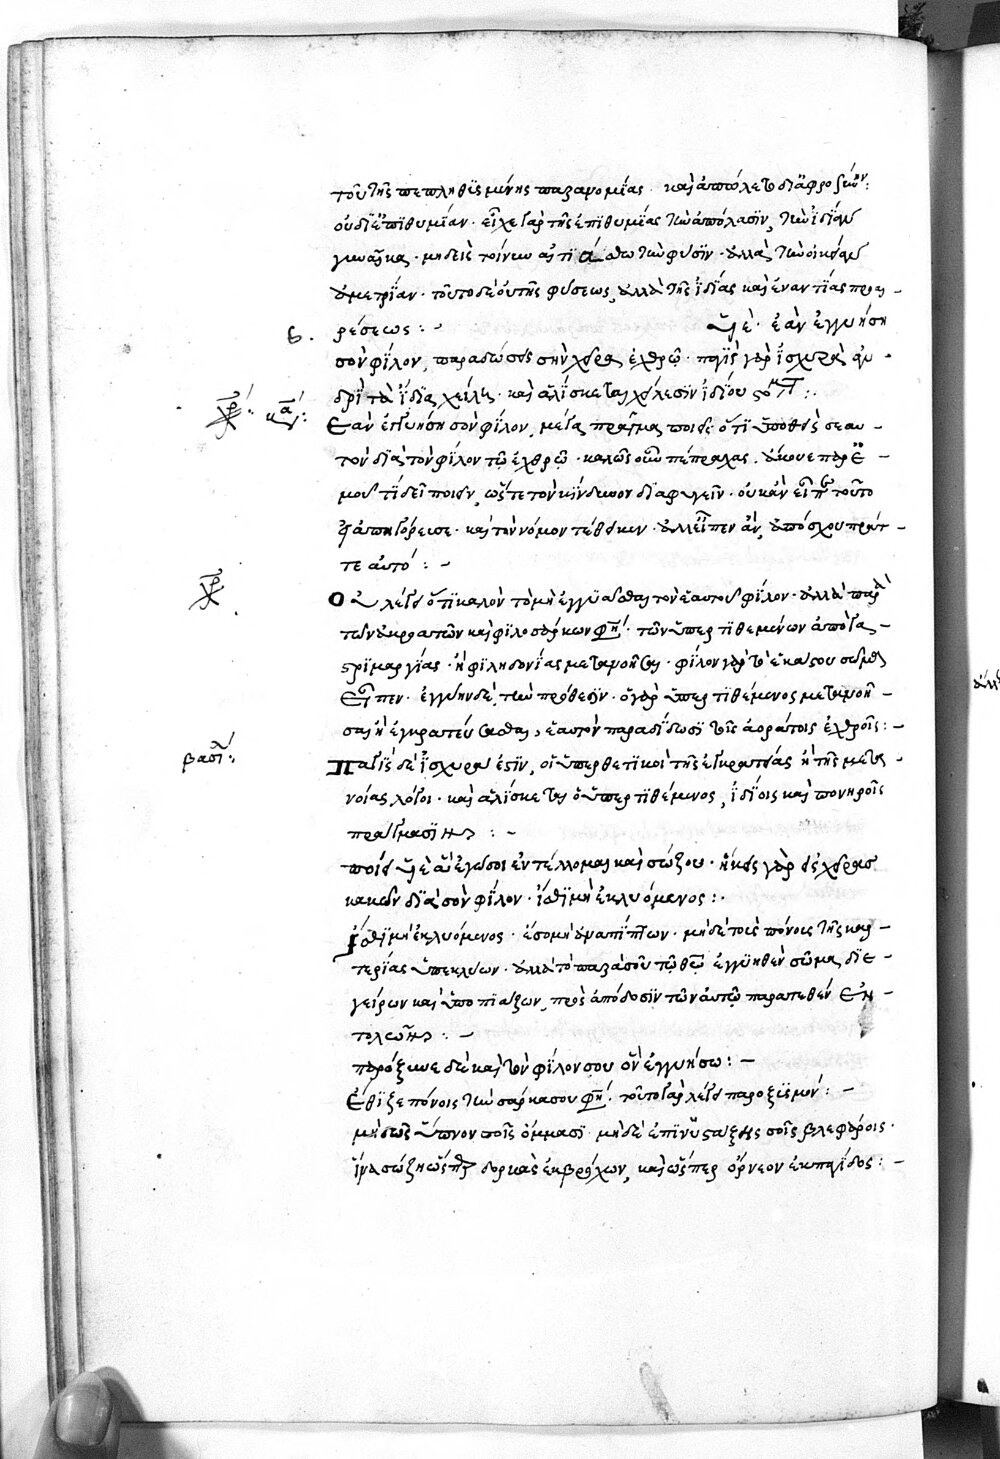 τοῦ τῆς πεπληθυσμένης παρανομίας. καὶ ἀπώλετο δι' ἀφροσύνην:
οὐ δι' ἐπιθυμίαν. εἶχε γὰρ τῆς ἐπιθυμίας τὴν ἀπόλαυσιν, τὴν ἰδίαν
γυναῖκα. μηδεὶς τοίνυν αἰτιάσθω τὴν φύσιν. ἀλλὰ τὴν οἰκείαν
ἀμετρίαν. τοῦτο δὲ οὐ τῆς φύσεως, ἀλλὰ τῆς ἰδίας καὶ ἐναντίας προαι-
ρέσεως:- υἱὲ. ἐὰν ἐγγυήσῃ
ς. σὸν φίλον, παραδώσεις σὴν χεῖρα ἐχθρῷ. παγὶς γὰρ ἰσχυρὰ ἀν-
δρὶ τὰ ἴδια χείλη. καὶ ἁλίσκεται χείλεσιν ἰδίου στόματος:
Ἐὰν ἐγγυήσῃ σὸν φίλον, μέγα πρᾶγμα ποιεῖς ὅτι ὑποθεὶς σεαυ-
τὸν διὰ τὸν φίλον τῷ ἐχθρῷ. καλῶς οὖν πέπραχας. ἄκουε παρ' ἐ-
μοῦ τί δεῖ ποιεῖν, ὥστε τὸν κίνδυνον διαφυγεῖν. οὐκ ἂν εἶπε τοῦτο
εἰ ἀπηγόρευσε. καὶ τὸν νόμον τέθεικεν. ἀλλ' εἶπεν ἂν, ἀπόσχου πράτ-
τε αὐτό:-
Οὐ λέγει ὅτι καλὸν τὸ μὴ ἐγγυᾶσθαι τὸν ἑαυτοῦ φίλον. ἀλλὰ παρὰ
τῶν ἀκρατῶν καὶ φιλοσάρκων φησί. τῶν ὑπερτιθεμένων ἀπὸ γα-
στριμαργίας. ἢ φιληδονίας μετανοῆσαι. φίλον γὰρ τὸ ἑκάστου σῶμα
εἶπεν. ἐγγύην δὲ, τὴν πρόθεσιν. ὁ γὰρ ὑπερτιθέμενος μετανοῆ-
σαι ἢ ἐγκρατεύεσθαι, ἑαυτὸν παραδίδωσι τοῖς ἀοράτοις ἐχθροῖς:-
βασι: Παγὶς δὲ ἰσχυρά ἐστιν, οἱ ὑπερθετικοὶ τῆς ἐγκρατείας ἢ τῆς μετα-
νοίας λόγοι. καὶ ἁλίσκεται ὁ ὑπερτιθέμενος, ἰδίοις καὶ πονηροῖς
πράγμασιν:-
ποίει υἱὲ ἃ ἐγώ σοι ἐντέλλομαι καὶ σώζου. ἥκεις γὰρ εἰς χεῖρας
κακῶν διὰ σὸν φίλον. ἴσθι μὴ ἐκλυόμενος:
Ἴσθι μὴ ἐκλυόμενος. ἔσο μὴ ἀναπίπτων. μηδὲ τοῖς πόνοις τῆς καρ-
τερίας ὑπεκλύων. ἀλλὰ τὸ παρὰ σοῦ τῷ θεῷ ἐγγυηθὲν σῶμα διε-
γείρων καὶ ὑποπιάζων, πρὸς ἀπόδοσιν τῶν αὐτῷ παρατεθέν ἐν-
τολῶν:-
παρόξυνε δὲ καὶ τὸν φίλον σου ὃν ἐγγυήσω:-
Ἔθιζε πόνοις τὴν σάρκα σου φησί. τοῦτο γὰρ λέγει παροξυσμόν:-
μὴ δῷς ὕπνον τοῖς ὄμμασι. μηδὲ ἐπινυστάξῃς σοῖς βλεφάροις.
ἵνα σώζῃ ὥσπερ δορκὰς ἐκ βρόχων, καὶ ὥσπερ ὄρνεον ἐκ παγίδος:-